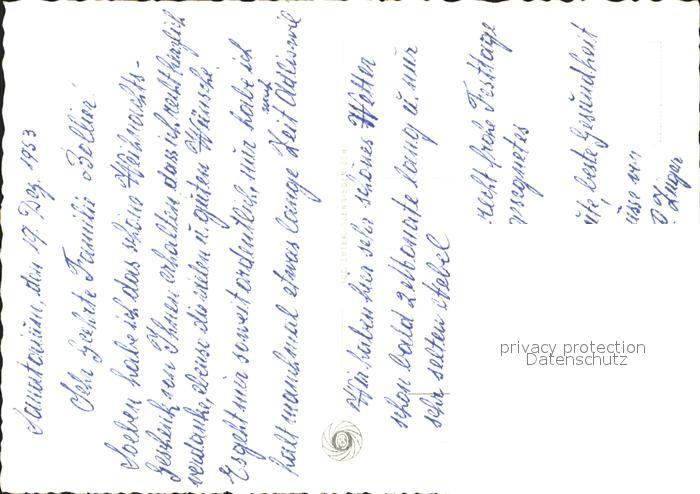 Sanatorium, den 19. Dez. 1953
Sehr Geehrte Familie Bollier!
Soeben habe ich das schöne Weihnachts-
geschenk von Ihnen erhalten, dass ich recht herzlich
verdanke, ebenso die vielen u. guten Wünsche
Es geht mir soweit ordentlich, nur habe ich
halt manchmal etwas lange Zeit nach Adliswil
Wir haben hier sehr schönes Wetter
schon bald 2 Monate lang u. nur
sehr selten Nebel
recht frohe Festtage
gesegnetes
beste Gesundheit
von
Züger
privacy protection
Datenschutz